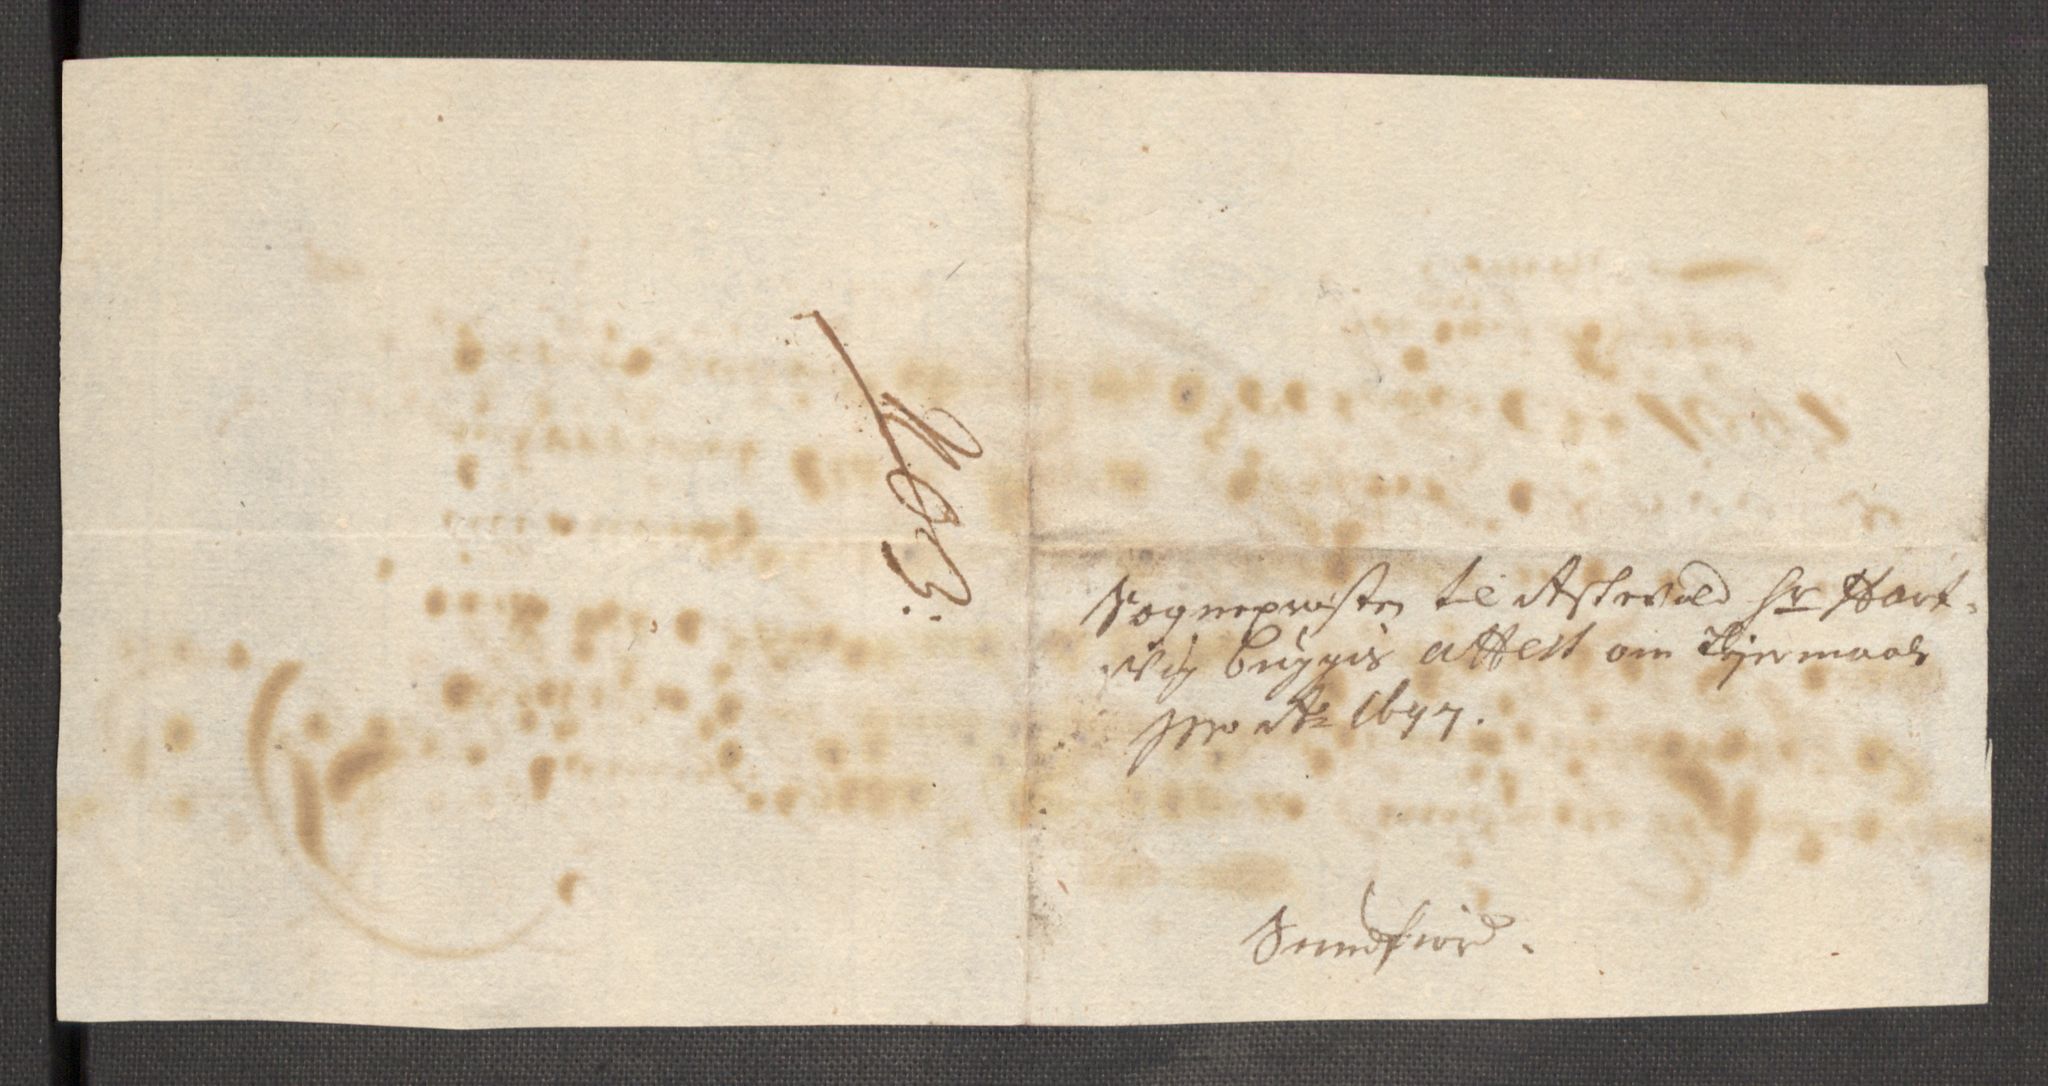 N 63.
Sognepresten til Askevold hr Hart-
vig byggis attest om Leyermaals
pro Ao 1697.
Sundfiord.